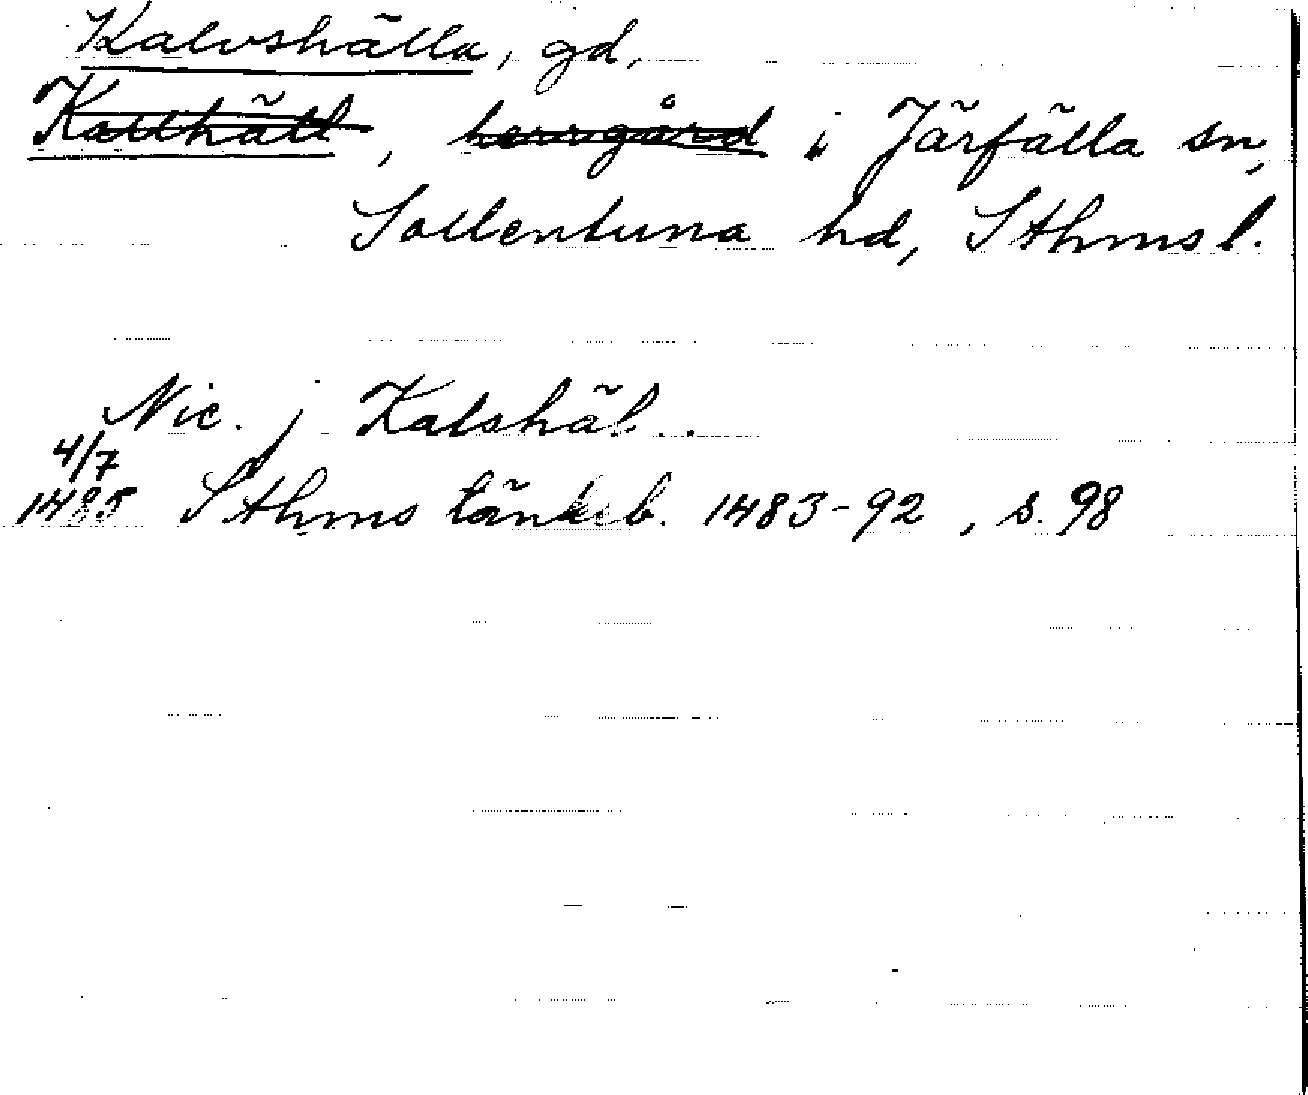 Kalvshälla, gd,
Kallhäll, herrgård i Järfälla sn,
Sollentuna hd, Sthms l.
Nic. j Kalshäl..
4/7
1485 Sthms tänkeb. 1483-92, s. 98